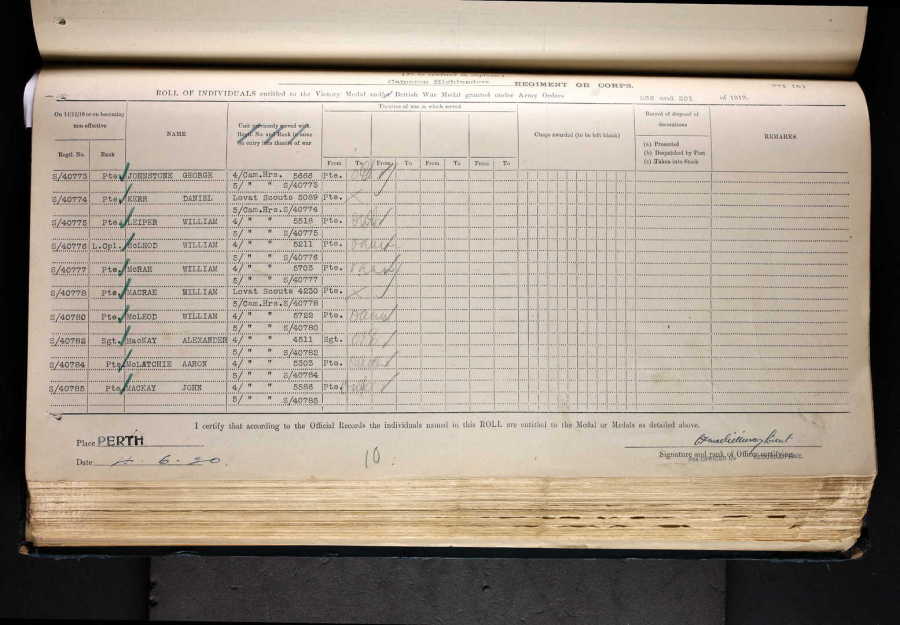 Cameron Highlanders REGIMENT OR CORPS.
ROLL OF INDIVIDUALS entitled to the Victory Medal and/or British War Medal granted under Army Orders 266 and 301 of 1919.
On 11/11/18 or on becoming non-effective
Regtl. No. Rank
NAME
Unit previously served with. Regtl. No. and Rank in same on entry into theatre of war
Theatres of war in which served
From To From To From To From To
Clasps awarded (to be left blank)
Record of disposal of decorations
(a) Presented
(b) Despatched by Post
(c) Taken into Stock
REMARKS
S/40773 Pte. JOHNSTONE GEORGE 4/Cam.Hrs. 5666 Pte.
5/ " " S/40773
S/40774 Pte. KERR DANIEL Lovat Scouts 5089 Pte.
5/Cam.Hrs.S/40774
S/40775 Pte. LEIPER WILLIAM 4/ " " 5518 Pte.
5/ " " S/40775
S/40776 L.Cpl. McLEOD WILLIAM 4/ " " 5211 Pte.
5/ " " S/40776
S/40777 Pte. McRAE WILLIAM 4/ " " 5703 Pte.
5/ " " S/40777
S/40778 Pte. MACRAE WILLIAM Lovat Scouts 4230 Pte.
5/Cam.Hrs.S/40778
S/40780 Pte. McLEOD WILLIAM 4/ " " 5722 Pte.
5/ " " S/40780
S/40782 Sgt. MacKAY ALEXANDER 4/ " " 4511 Sgt.
5/ " " S/40782
S/40784 Pte McLATCHIE AARON 4/ " " 5303 Pte.
5/ " " S/40784
S/40785 Pte MACKAY JOHN 4/ " " 5586 Pte.
5/ " " S/40785
I certify that according to the Official Records the individuals named in this ROLL are entitled to the Medal or Medals as detailed above.
Place PERTH
Date 4.6.20. 10.
Signature and rank of Officer certifying.